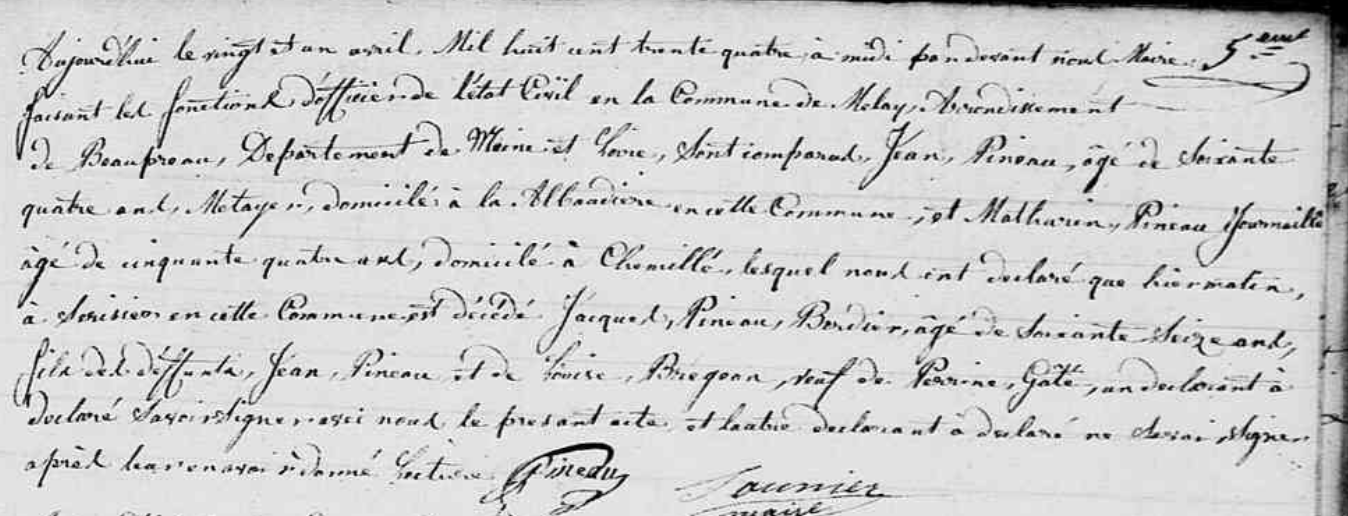 Aujourd'hui le vingt et un avril, Mil huit cent trente quatre, à midi pardevant nous Maire, 5eme
faisant les fonctions d'officier de l'état Civil en la Commune de Melay, Arrondissement
de Beaupreau, Departement de Maine et Loire, sont comparus, Jean, Pineau, âgé de soixante
quatre ans, Metayer, domicilé à la en cette Commune, et Mathurin, Pineau Journailié
âgé de cinquante quatre ans, domicilé à Chemillé, lesquel nous ont declaré que hier matin,
à en cette Commune est décédé Jacques, Pineau, Bordier, âgé de soixante seize ans,
fils des deffunts, Jean, Pineau et de Loise, Bregeon, veuf de Perrine, Gâté, un declarant à
declaré savoir signer avec nous le presant acte et lautre declarant à declaré ne savoir signer
après leur en avoir donné lecture Pineau Saunier
maire